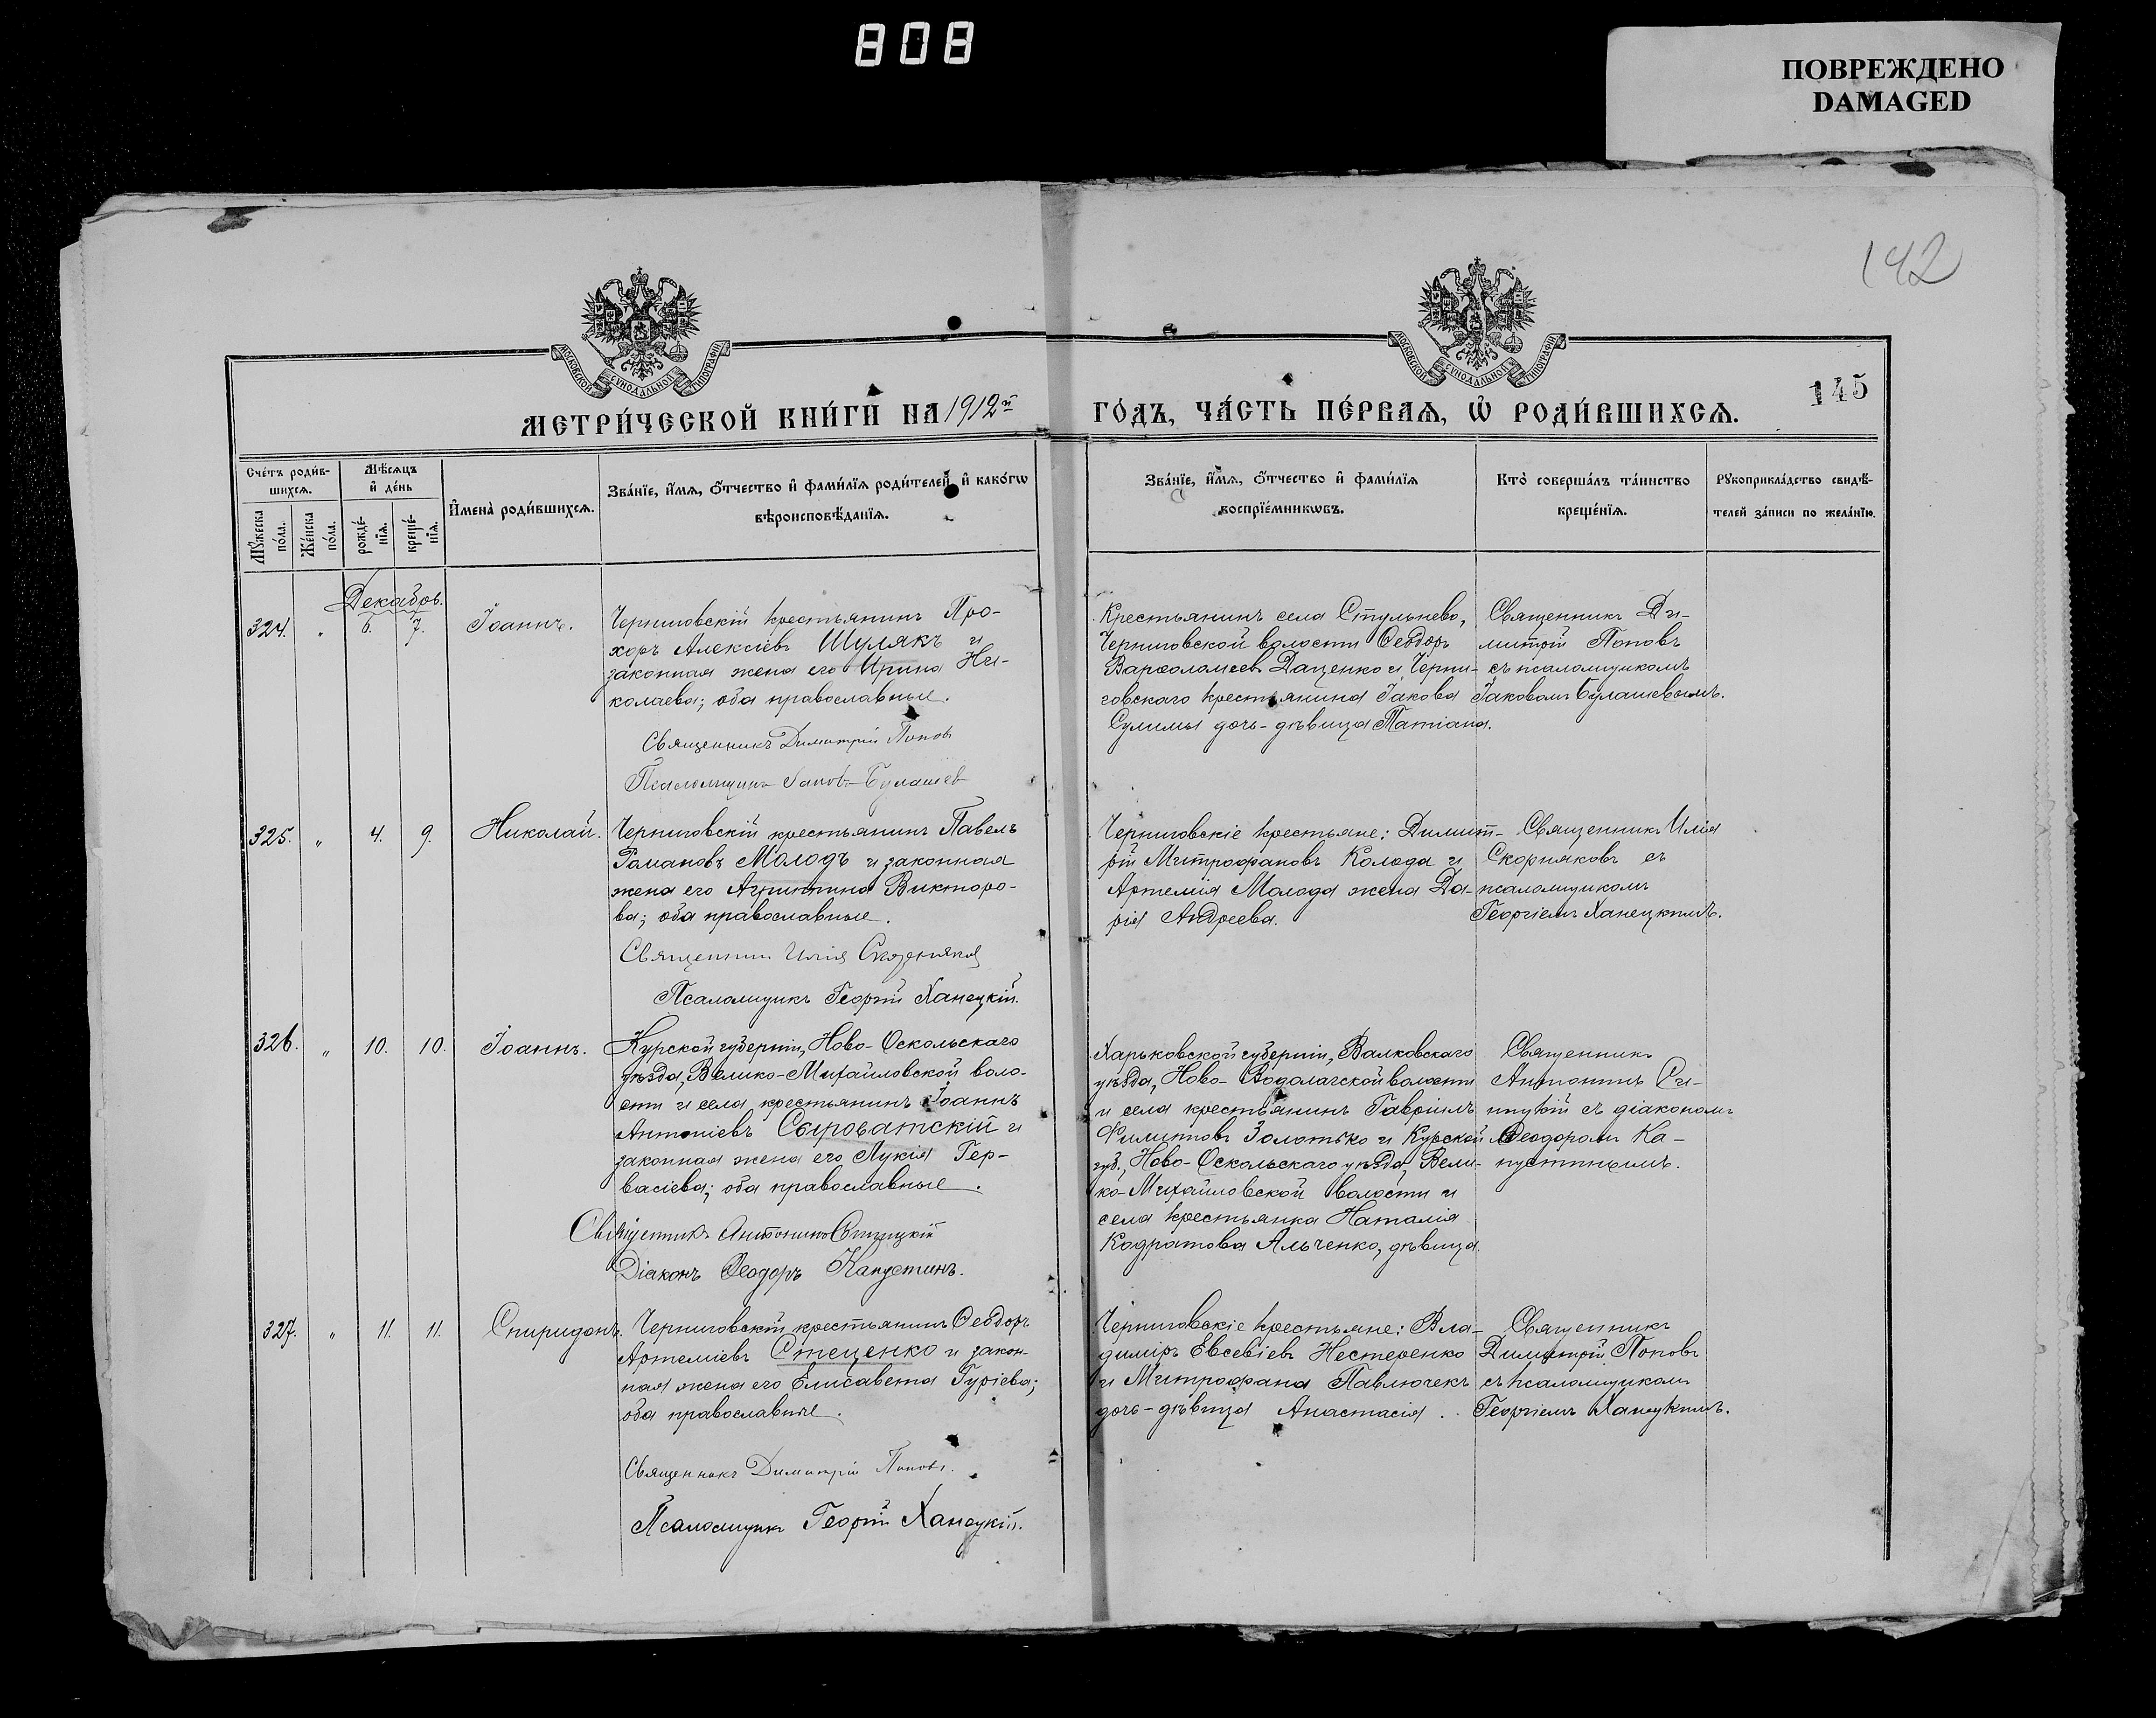 808
ПОВРЕЖДЕНО
DAMAGED
142
МОСКОВСКОЙ СѴНОДАЛЬНОЙ ТИПОГРАФІИ
МОСКОВСКОЙ СѴНОДАЛЬНОЙ ТИПОГРАФІИ
145
МЕТРИ́ЧЕСКОЙ КНИ́ГИ НА 1912й
ГО́ДЪ, ЧА́СТЬ ПЕ́РВАѦ, Ѡ҆ РОДИ́ВШИХСѦ.
Сче́тъ роди́в-
шихсѧ.
Мꙋ́жеска по́ла.
Же́нска по́ла.
Мѣ́сѧцъ
и҆ де́нь
рожде́-
нїѧ.
креще́-
нїѧ.
И҆мена̀ роди́вшихсѧ.
Зва́нїе, и҆́мѧ, ѻ҆́тчество и҆ фами́лїѧ роди́телей, и҆ како́гѡ
вѣроисповѣ́данїѧ.
Зва́нїе, и҆́мѧ, ѻ҆́тчество и҆ фами́лїѧ
воспрїе́мникѡвъ.
Кто̀ соверша́лъ та́инство
креще́нїѧ.
Рꙋкоприкла́дство свидѣ́-
телей за́писи по жела́нїю.
Декабрь.
324. „ 6. 7. Іоаннъ.
Черниговскій крестьянинъ Про-
хоръ Алексіевъ Шулякъ и
законная жена его Ирина Ни-
колаева; оба православные.
Священникъ Димитрій Поповъ
Псаломщикъ Іаковъ Булашев
Крестьянинъ села Стульнево,
Черниговской волости Ѳеодоръ
Варѳоламеевъ Даценко и Черни-
говскаго крестьянина Іакова
Сулимы дочь-дѣвица Татіана.
Священникъ Ди-
митрій Поповъ
съ псаломщикомъ
Іаковомъ Булашевымъ.
325. „ 4. 9. Николай.
Черниговскій крестьянинъ Павелъ
Романовъ Молодъ и законная
жена его Агриппина Викторо-
ва; оба православные.
Священник Илія Скорняков
Псаломщикъ Георгій Ханецкій.
Черниговскіе крестьяне: Димит-
рій Митрофановъ Колода и
Артемія Молода жена Да-
рія Андреева.
Священникъ Илія
Скорняковъ съ
псаломщикомъ
Георгіемъ Ханецкимъ.
326. „ 10. 10. Іоаннъ.
Курской губерніи, Ново-Оскольскаго
уѣзда, Велико-Михайловской воло-
сти и села крестьянинъ Іоаннъ
Антоніевъ Сыроватскій и
законная жена его Лукія Гер-
васіева; оба православные.
Священникъ Антонинъ
Діаконъ Ѳеодоръ Капустинъ.
Харьковской губерніи, Валковскаго
уѣзда, Ново-Водолагской волости
и села крестьянинъ Гавріилъ
Филипповъ Золотько и Курской
губ., Ново-Оскольскаго уѣзда, Вели-
ко-Михайловской волости и
села крестьянка Наталія
Кодратова Альченко, дѣвица.
Священникъ
Антонинъ
съ діакономъ
Ѳеодоромъ Ка-
пустинымъ.
327. „ 11. 11. Спиридонъ.
Черниговскій крестьянинъ Ѳеодоръ
Артеміевъ Стеценко и закон-
ная жена его Елисавета Гуріева;
оба православные.
Священникъ Димитрій Поповъ.
Псаломщикъ Георгій Ханецкій.
Черниговскіе крестьяне: Вла-
диміръ Евсевіевъ Нестеренко
и Митрофана Павлючекъ
дочь-дѣвица Анастасія.
Священникъ
Димитрій Поповъ
съ псаломщикомъ
Георгіемъ Ханецкимъ.